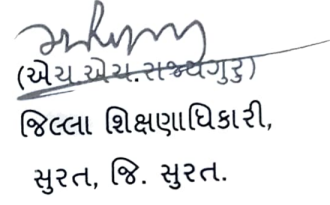 (એચ.એચ.રાજ્યગુરુ)
જિલ્લા શિક્ષણાધિકારી,
સુરત, જિ. સુરત.